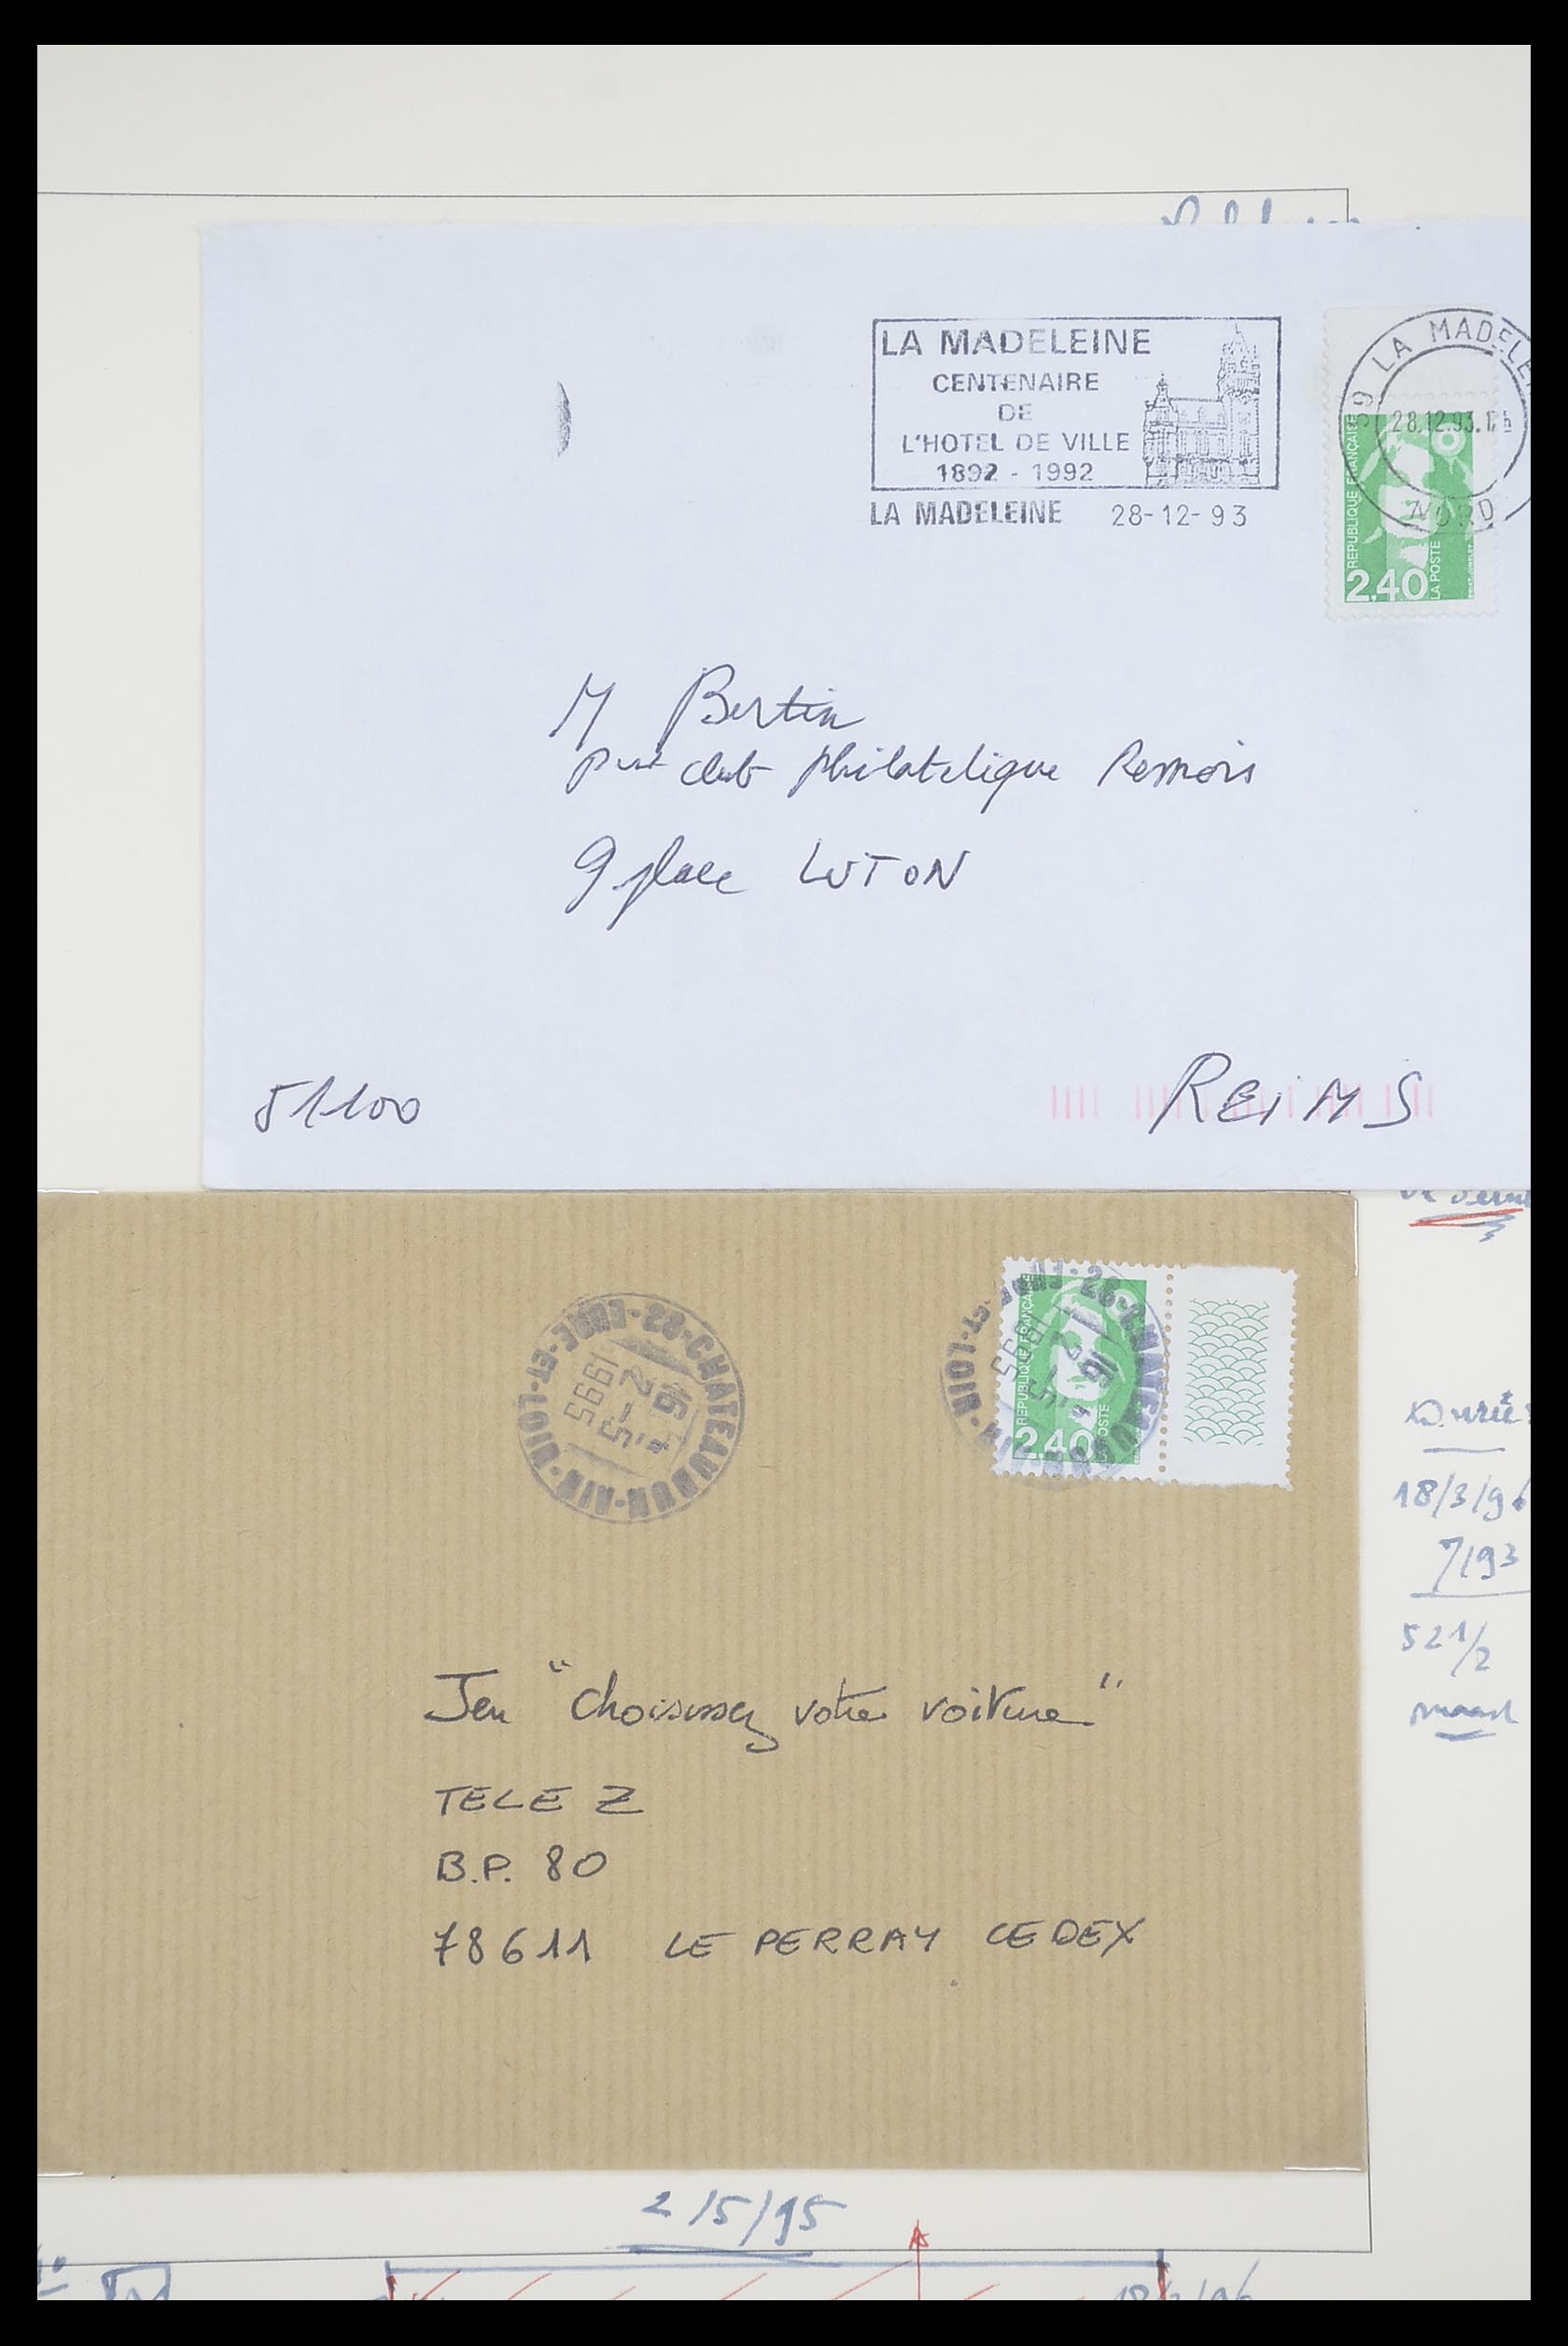 LA MADELEINE
CENTENAIRE
DE
L'HOTEL DE VILLE
1892 - 1992
LA MADELEINE 28-12-93
59 LA MADELE
28.12.93.17h
NORD
REPUBLIQUE FRANÇAISE
2,40
LA POSTE
M Bertin
club philatelique Remois
9 place LUTON
51100 REIMS
28-CHATEAUDUN-AIR-EURE-ET-LOIR
16
2-5
1995
28-CHATEAUDUN-AIR-EURE-ET-LOIR
16
2-5
1995
REPUBLIQUE FRANÇAISE
2,40
POSTE
Jeu "choisissez votre voiture"
TELE Z
B.P. 80
78611 LE PERRAY CEDEX
18/3/96
7/93
52 1/2
2/5/95